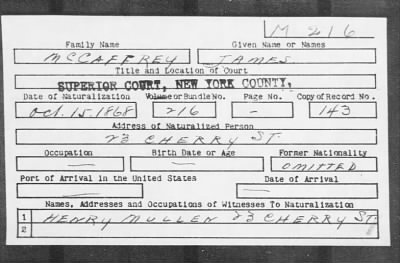 M 216
Family Name Given Name or Names
MCCAFFREY JAMES
Title and Location of Court
SUPERIOR COURT, NEW YORK COUNTY,
Date of Naturalization Volume or Bundle No. Page No. Copy of Record No.
Oct. 15. 1868 216 — 143
Address of Naturalized Person
23 CHERRY ST.
Occupation Birth Date or Age Former Nationality
— — OMITTED
Port of Arrival in the United States Date of Arrival
— —
Names, Addresses and Occupations of Witnesses To Naturalization
1 HENRY MULLEN 23 CHERRY ST.
2